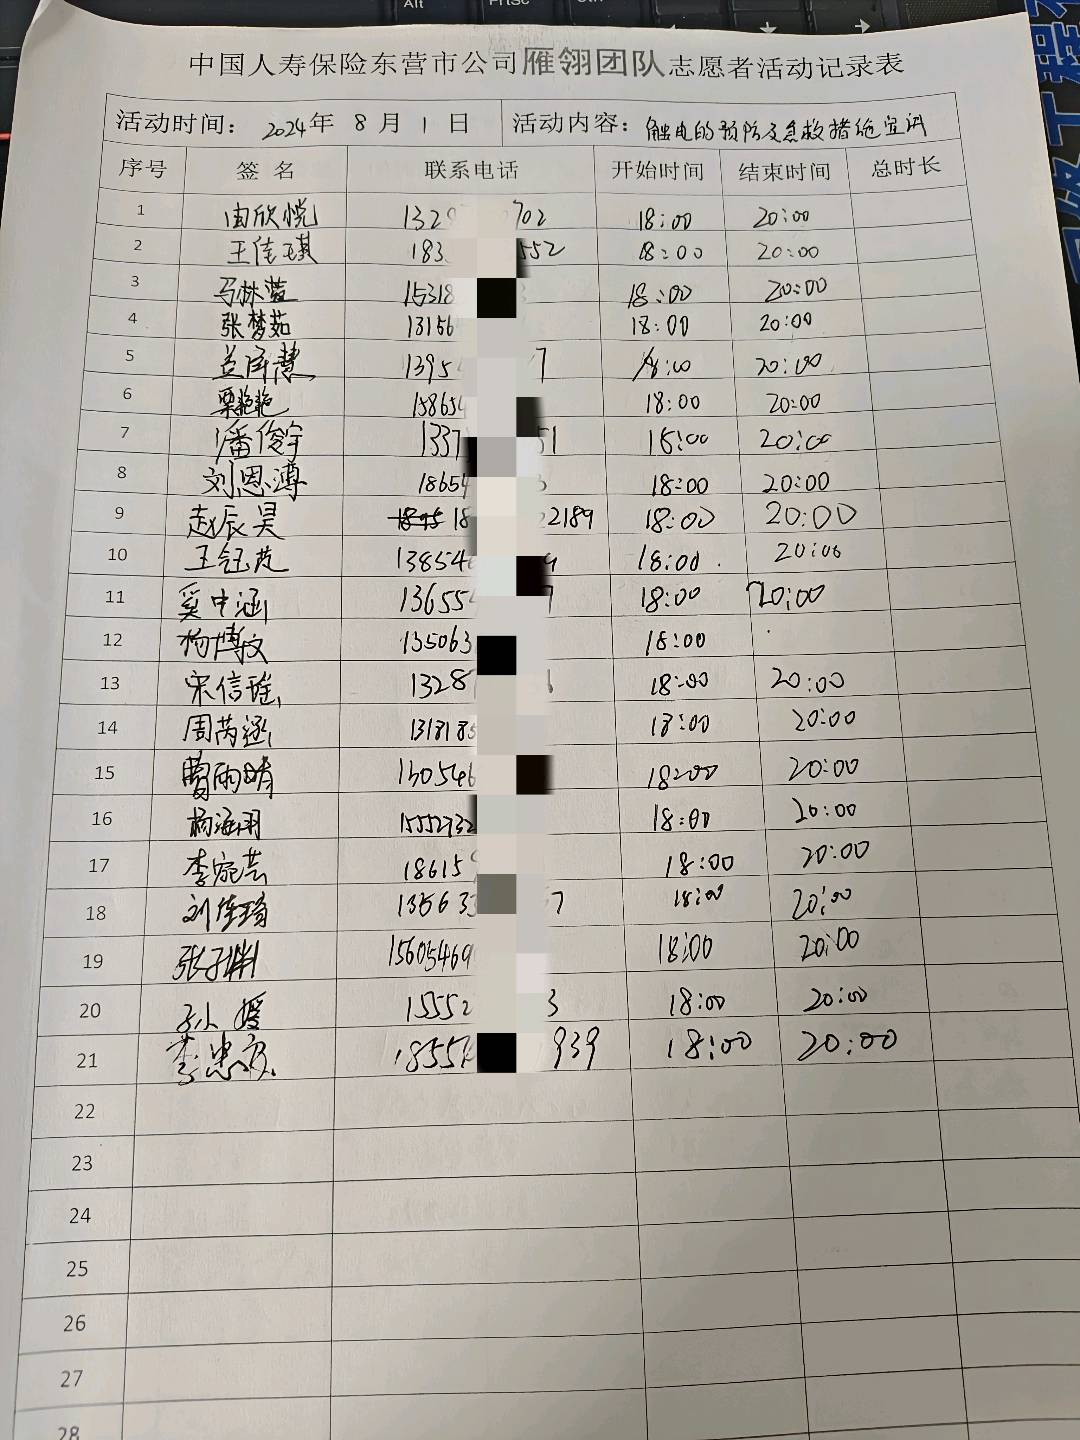 Alt PrtSc Ctrl
中国人寿保险东营市公司雁翎团队志愿者活动记录表
活动时间: 2024年 8 月 1 日 活动内容: 触电的预防及急救措施宣讲
序号 签 名 联系电话 开始时间 结束时间 总时长
1 由欣悦 1328 702 18:00 20:00
2 王佳琪 183 552 18:00 20:00
3 马林蓝 15318 18:00 20:00
4 张梦茹 13156 18:00 20:00
5 慧 1395 18:00 20:00
6 栗艳艳 158654 18:00 20:00
7 潘俊宇 1337 51 18:00 20:00
8 刘恩溥 18654 18:00 20:00
9 赵辰昊 18 22189 18:00 20:00
10 王钰 13854 18:00 20:00
11 奚中涵 13655 18:00 20:00
12 杨博文 135063 18:00
13 宋信瑶 1328 18:00 20:00
14 周芮涵 131818 18:00 20:00
15 曹雨晴 130546 18:00 20:00
16 杨海翔 15552932 18:00 20:00
17 李宛芸 18615 18:00 20:00
18 刘佳琦 135633 7 18:00 20:00
19 张子 15605469 18:00 20:00
20 孙媛 15552 3 18:00 20:00
21 李忠 1855 939 18:00 20:00
22
23
24
25
26
27
28